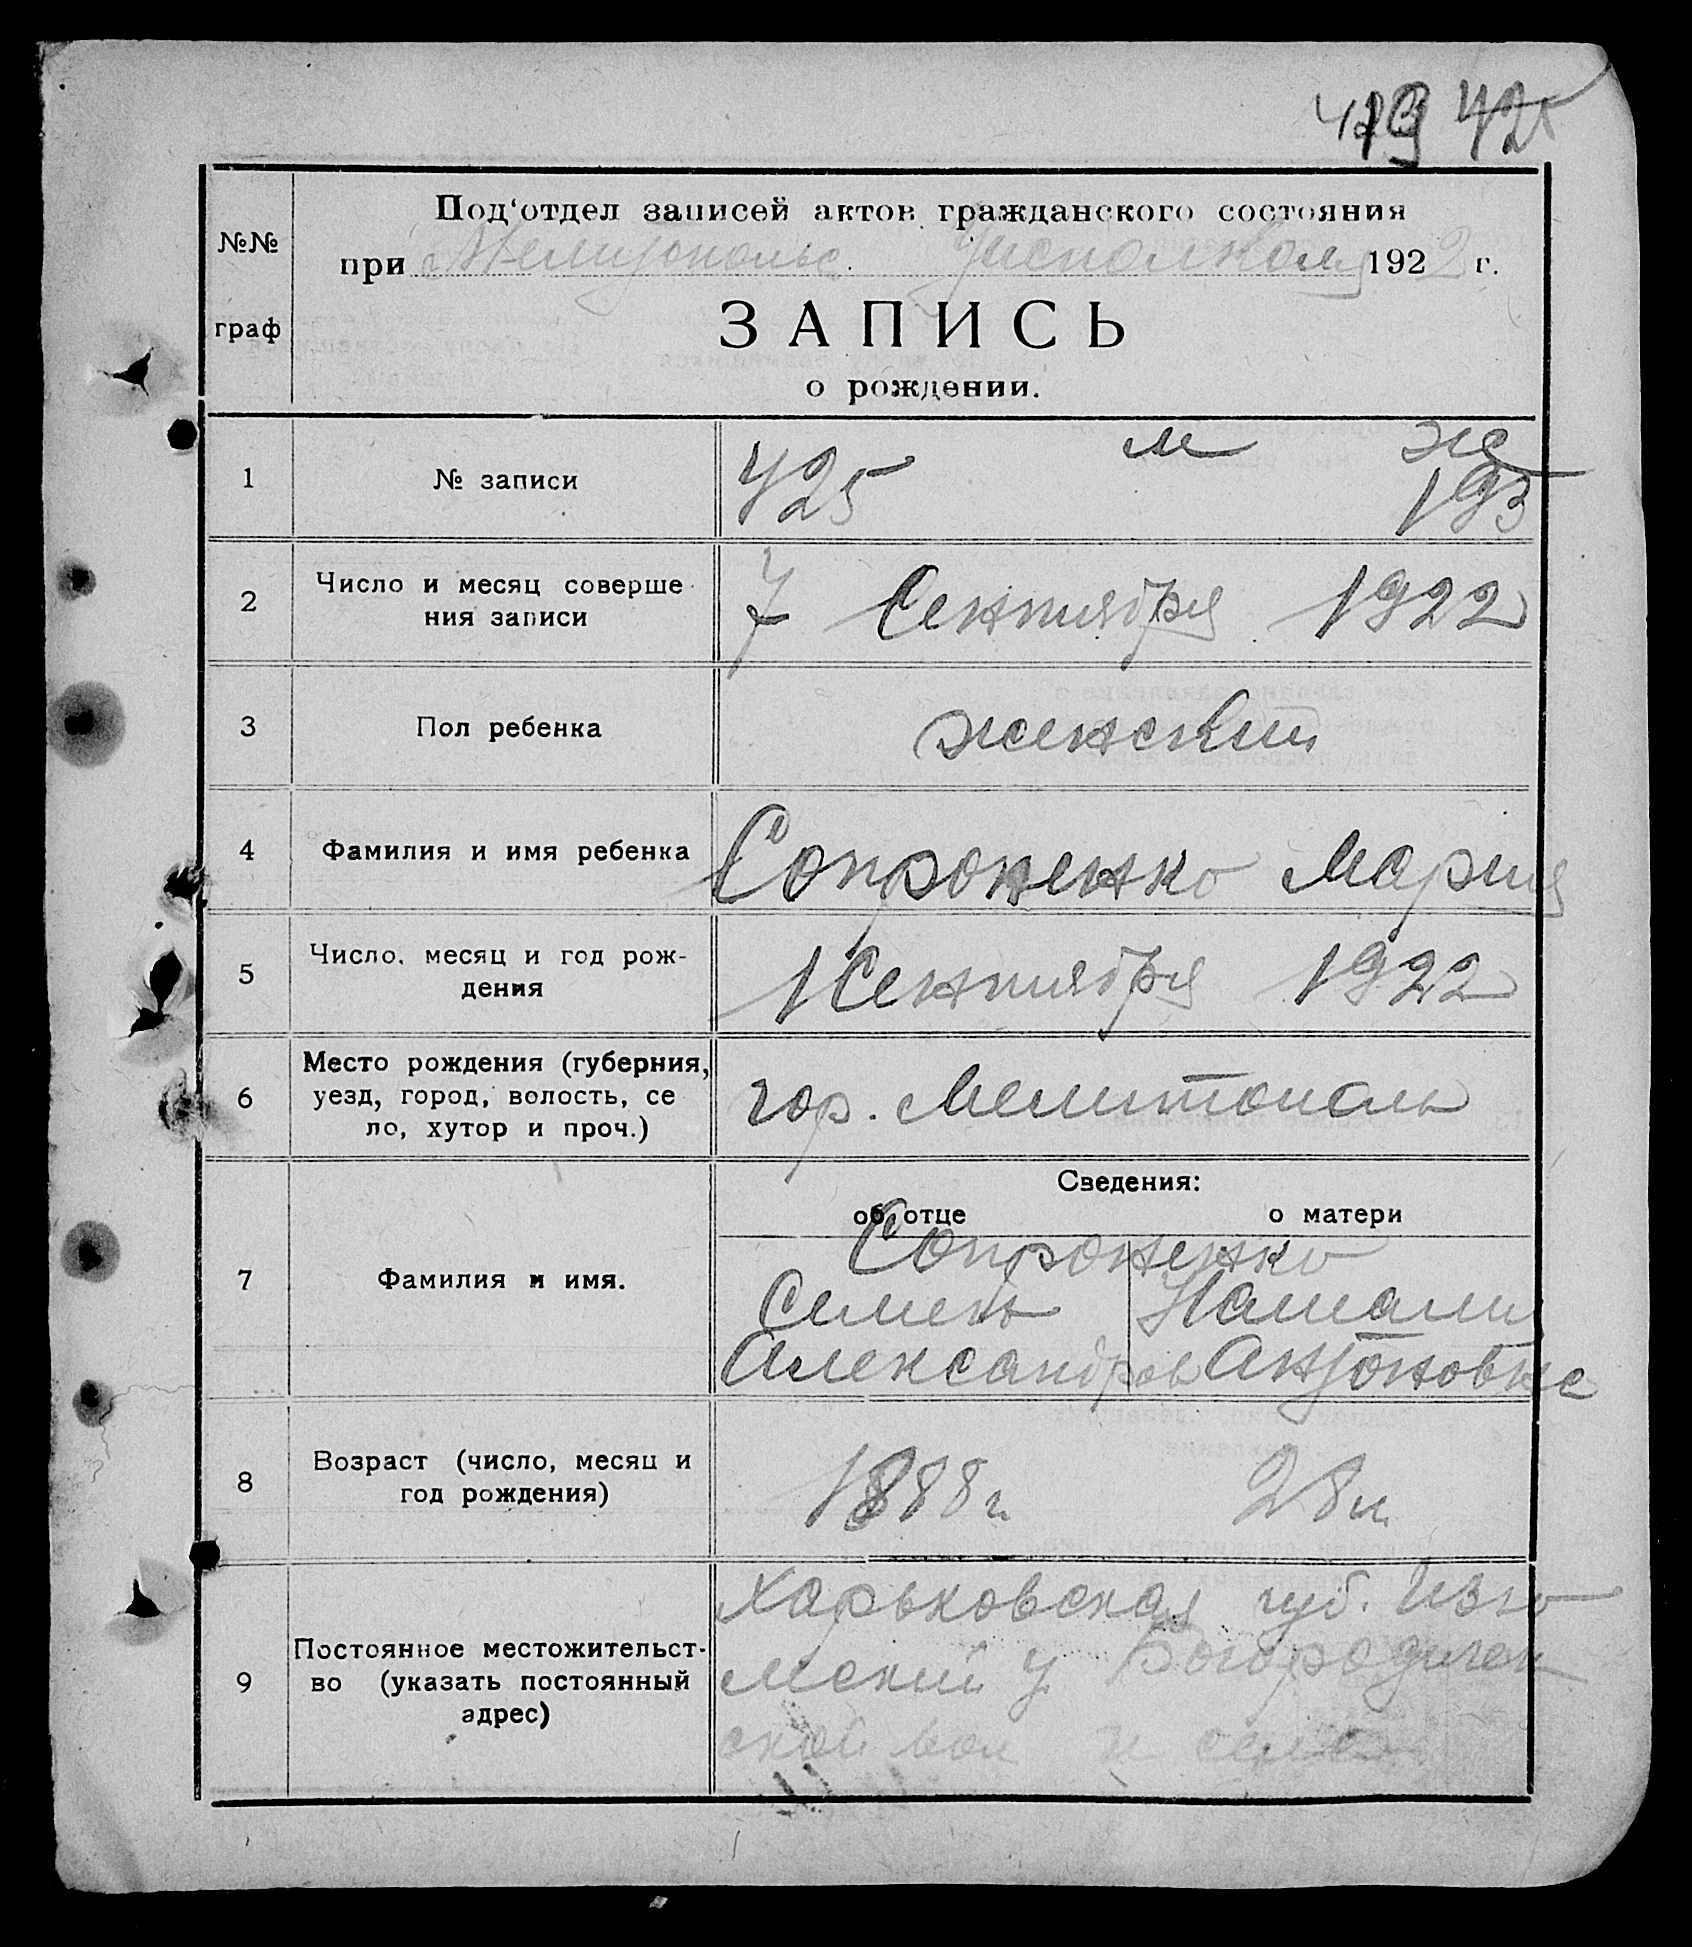 425
№№
граф
Под‘отдел записей актов гражданского состояния
при Мелитопольс. Уисполкоме 1922 г.
ЗАПИСЬ
о рождении.
1 № записи 425 м же
193
2 Число и месяц соверше
ния записи
7 Сентября 1922
3 Пол ребенка женский
4 Фамилия и имя ребенка Сопроненко Мария
5 Число, месяц и год рож-
дения
1 Сентября 1922
6 Место рождения (губерния,
уезд, город, волость, се
ло, хутор и проч.)
гор. Мелитополь
Сведения:
об отце о матери
7 Фамилия и имя.
Сопроненко
Семен Наталии
Александров Антоновне
8 Возраст (число, месяц и
год рождения)
1888 г. 28 л.
9 Постоянное местожительст-
во (указать постоянный
адрес)
Харьковская губ. Изю
мский у. Богородичан
ской вол и село